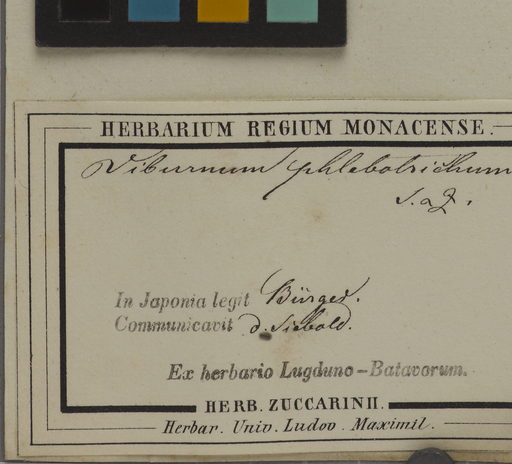 HERBARIUM REGIUM MONACENSE.
Viburnum phlebotrichum
S. a Z.
In Japonia legit Bürger.
Communicavit d. Siebold.
Ex herbario Lugduno-Batavorum.
HERB. ZUCCARINII.
Herbar. Univ. Ludov. Maximil.